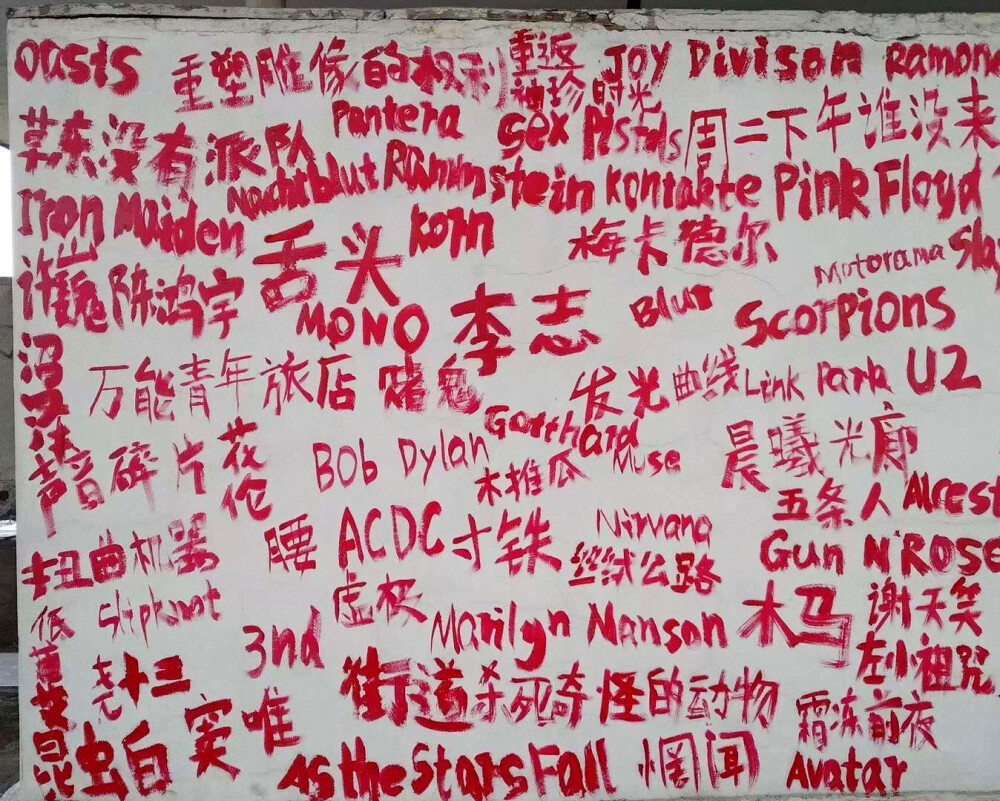 oasis 重塑雕像的权利 重返 Joy Divison Ramone
袖珍时光
莫东没有派队 Pantera Sex Pistols 周二下午谁没来
Nachtblut Rammstein Kontakte Pink Floyd
Iron Maiden 舌头 korn 梅卡德尔
Motorama Sla
许巍 陈鸿宇 MONO 李志 Blur Scorpions
万能青年旅店 赌鬼 发光曲线 Link Park U2
Gotthard
声音碎片 花伦 Bob Dylan 木推瓜 Muse 晨曦光廊
五条人 Alcest
扭曲机器 腰 ACDC 寸铁 Nirvana
丝绒公路 Gun N'ROSE
低苦艾 Slipknot 虚极 Marilyn Manson 木马 谢天笑
3nd 左小祖咒
尧十三 街道杀死奇怪的动物
昆虫白 窦唯 霜冻前夜
As the Stars Fall 惘闻 Avatar